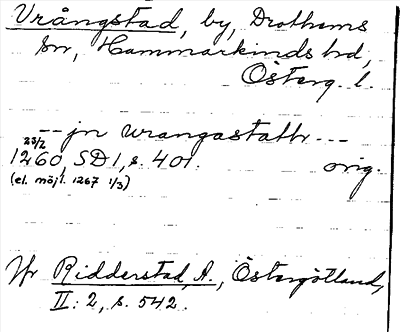 Vrångstad, by, Drothems
sn, Hammarkinds hd,
Österg. l.
-- jn wrangastathr ---
23/2
1260, SD 1, s. 401. orig.
(el. möjl. 1267 1/3)
Jfr Ridderstad, A., Östergötland,
II: 2, s. 542.